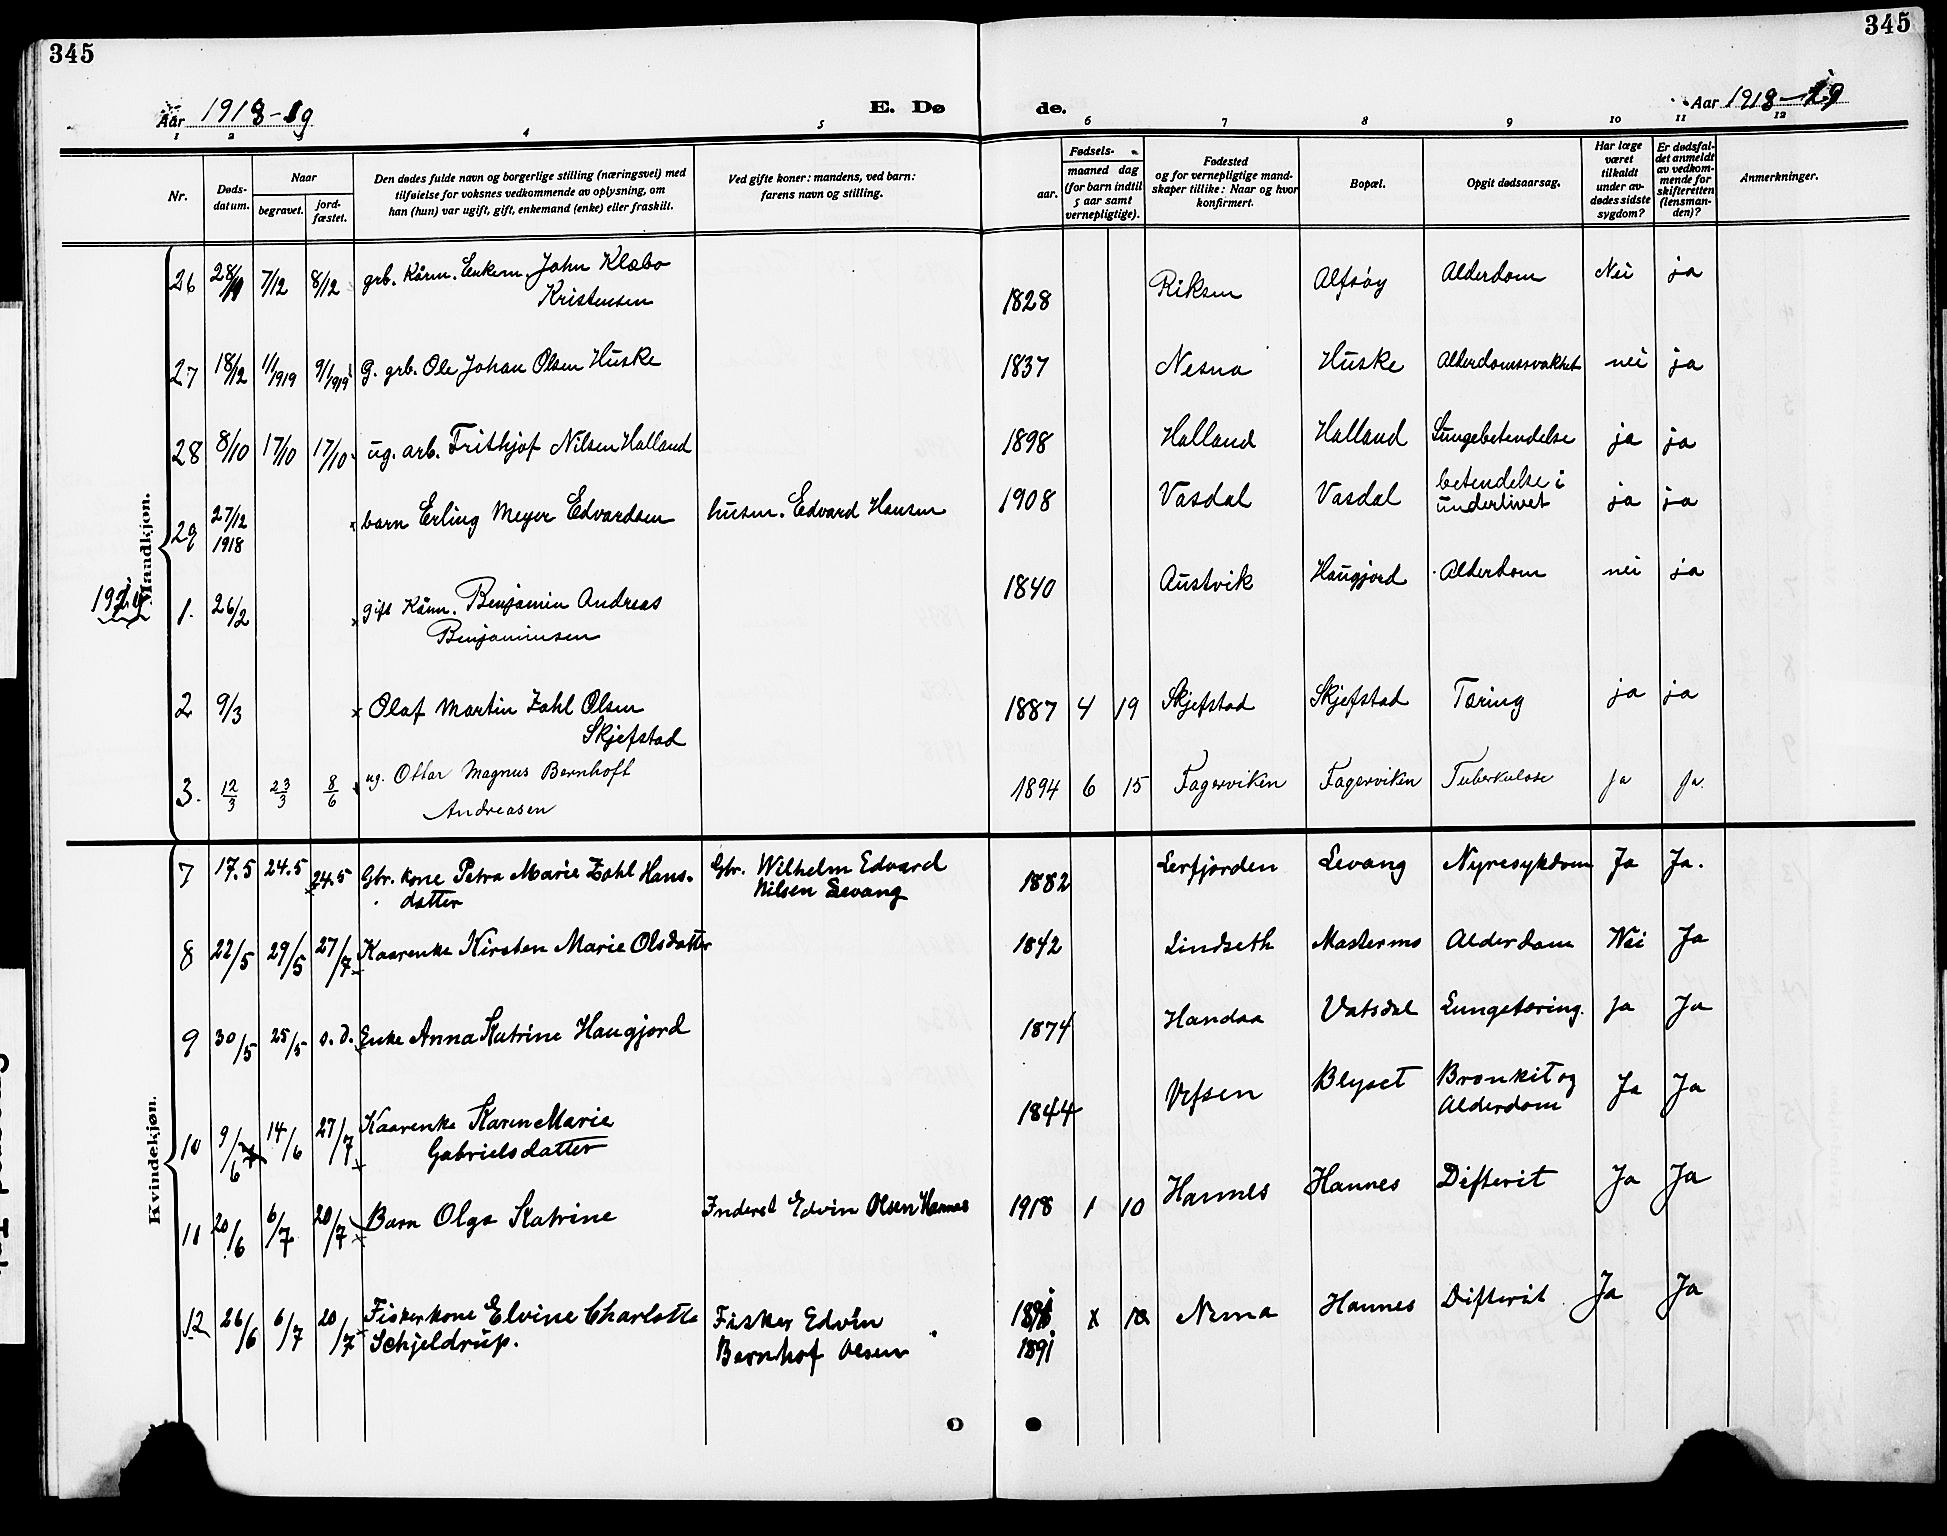 345
345
Aar 1918-19
E. Dø
de.
Aar 1918-19
1 2 4 5 6 7 8 9 10 11 12
Nr.
Døds-
datum.
Naar
begravet.
jord-
fæstet.
Den dødes fulde navn og borgerlige stilling (næringsvei) med
tilføielse for voksnes vedkommende av oplysning, om
han (hun) var ugift, gift, enkemand (enke) eller fraskilt.
Ved gifte koner: mandens, ved barn:
farens navn og stilling.
Fødsels-
aar.
maaned dag
(for barn indtil
5 aar samt
vernepligtige).
Fødested
og for vernepligtige mand-
skaper tillike: Naar og hvor
konfirmert.
Bopæl.
Opgit dødsaarsag.
Har læge
været
tilkaldt
under av-
dødes sidste
sygdom?
Er dødsfal-
det anmeldt
av vedkom-
mende for
skifteretten
(lensman-
den)?
Anmerkninger.
Mandkjøn.
26 28/11 7/12 8/12 grb. Kårm. Enkem. John Klæbo
Kristensen 1828 Alfsøy Alderdom Nei ja
27 18/12 1/1 1919 9/1 1919 g. grb. Ole Johan Olsen Huske 1837 Nesna Huske Alderdomssvakhet nei ja
28 8/10 17/10 17/10 ug. arb. Frithjof Nilsen Halland 1898 Halland Halland Lungebetendelse ja ja
29 27/12 1918 barn Erling Meyer Edvardsen husm. Edvard Hansen 1908 Vasdal Vasdal betendelse i
underlivet ja ja
1. 26/2 gift Kårm. Benjamin Andreas
Benjaminsen 1840 Austvik Haugjord Alderdom nei ja
2 9/3 x Olaf Martin Zahl Olsen
Skjefstad 1887 4 19 Skjefstad Skjefstad Tæring ja ja
3. 12/3 23/3 8/6 ug. Ottar Magnus Bernhoft
Andreasen 1894 6 15 Fagerviken Fagerviken Tuberkulose ja ja.
Kvindekjøn.
7 17.5 24.5 24.5 Gbr. kone Petra Marie Zahl Hans-
datter Gbr. Wilhelm Edvard
Nilsen Levang 1882 Lerfjorden Levang Nyresykdom Ja Ja.
8 22/5 29/5 27/7 Kaarenke Kirsten Marie Olsdatter 1842 Lindseth Mastermo Alderdom Nei Ja
9 30/5 25/5 s. d. Enke Anna Katrine Haugjord 1874 Handaa Vatsdal Lungetæring. ja Ja
10 9/6 14/6 27/7 Kaarenke Karen Marie
Gabrielsdatter 1844 Vefsen Blyset Bronkit og
Alderdom Ja Ja
11 20/6 6/7 20/7 Barn Olga Katrine Inderst Edvin Olsen Hannes 1918 1 10 Hannes Hannes Difterit Ja Ja
12 26/6 6/7 20/7 Fiskerkone Elvine Charlotte
Schjeldrup. Fisker Edvin
Bernhof Olsen 1891
1891 Hannes Difterit Ja Ja